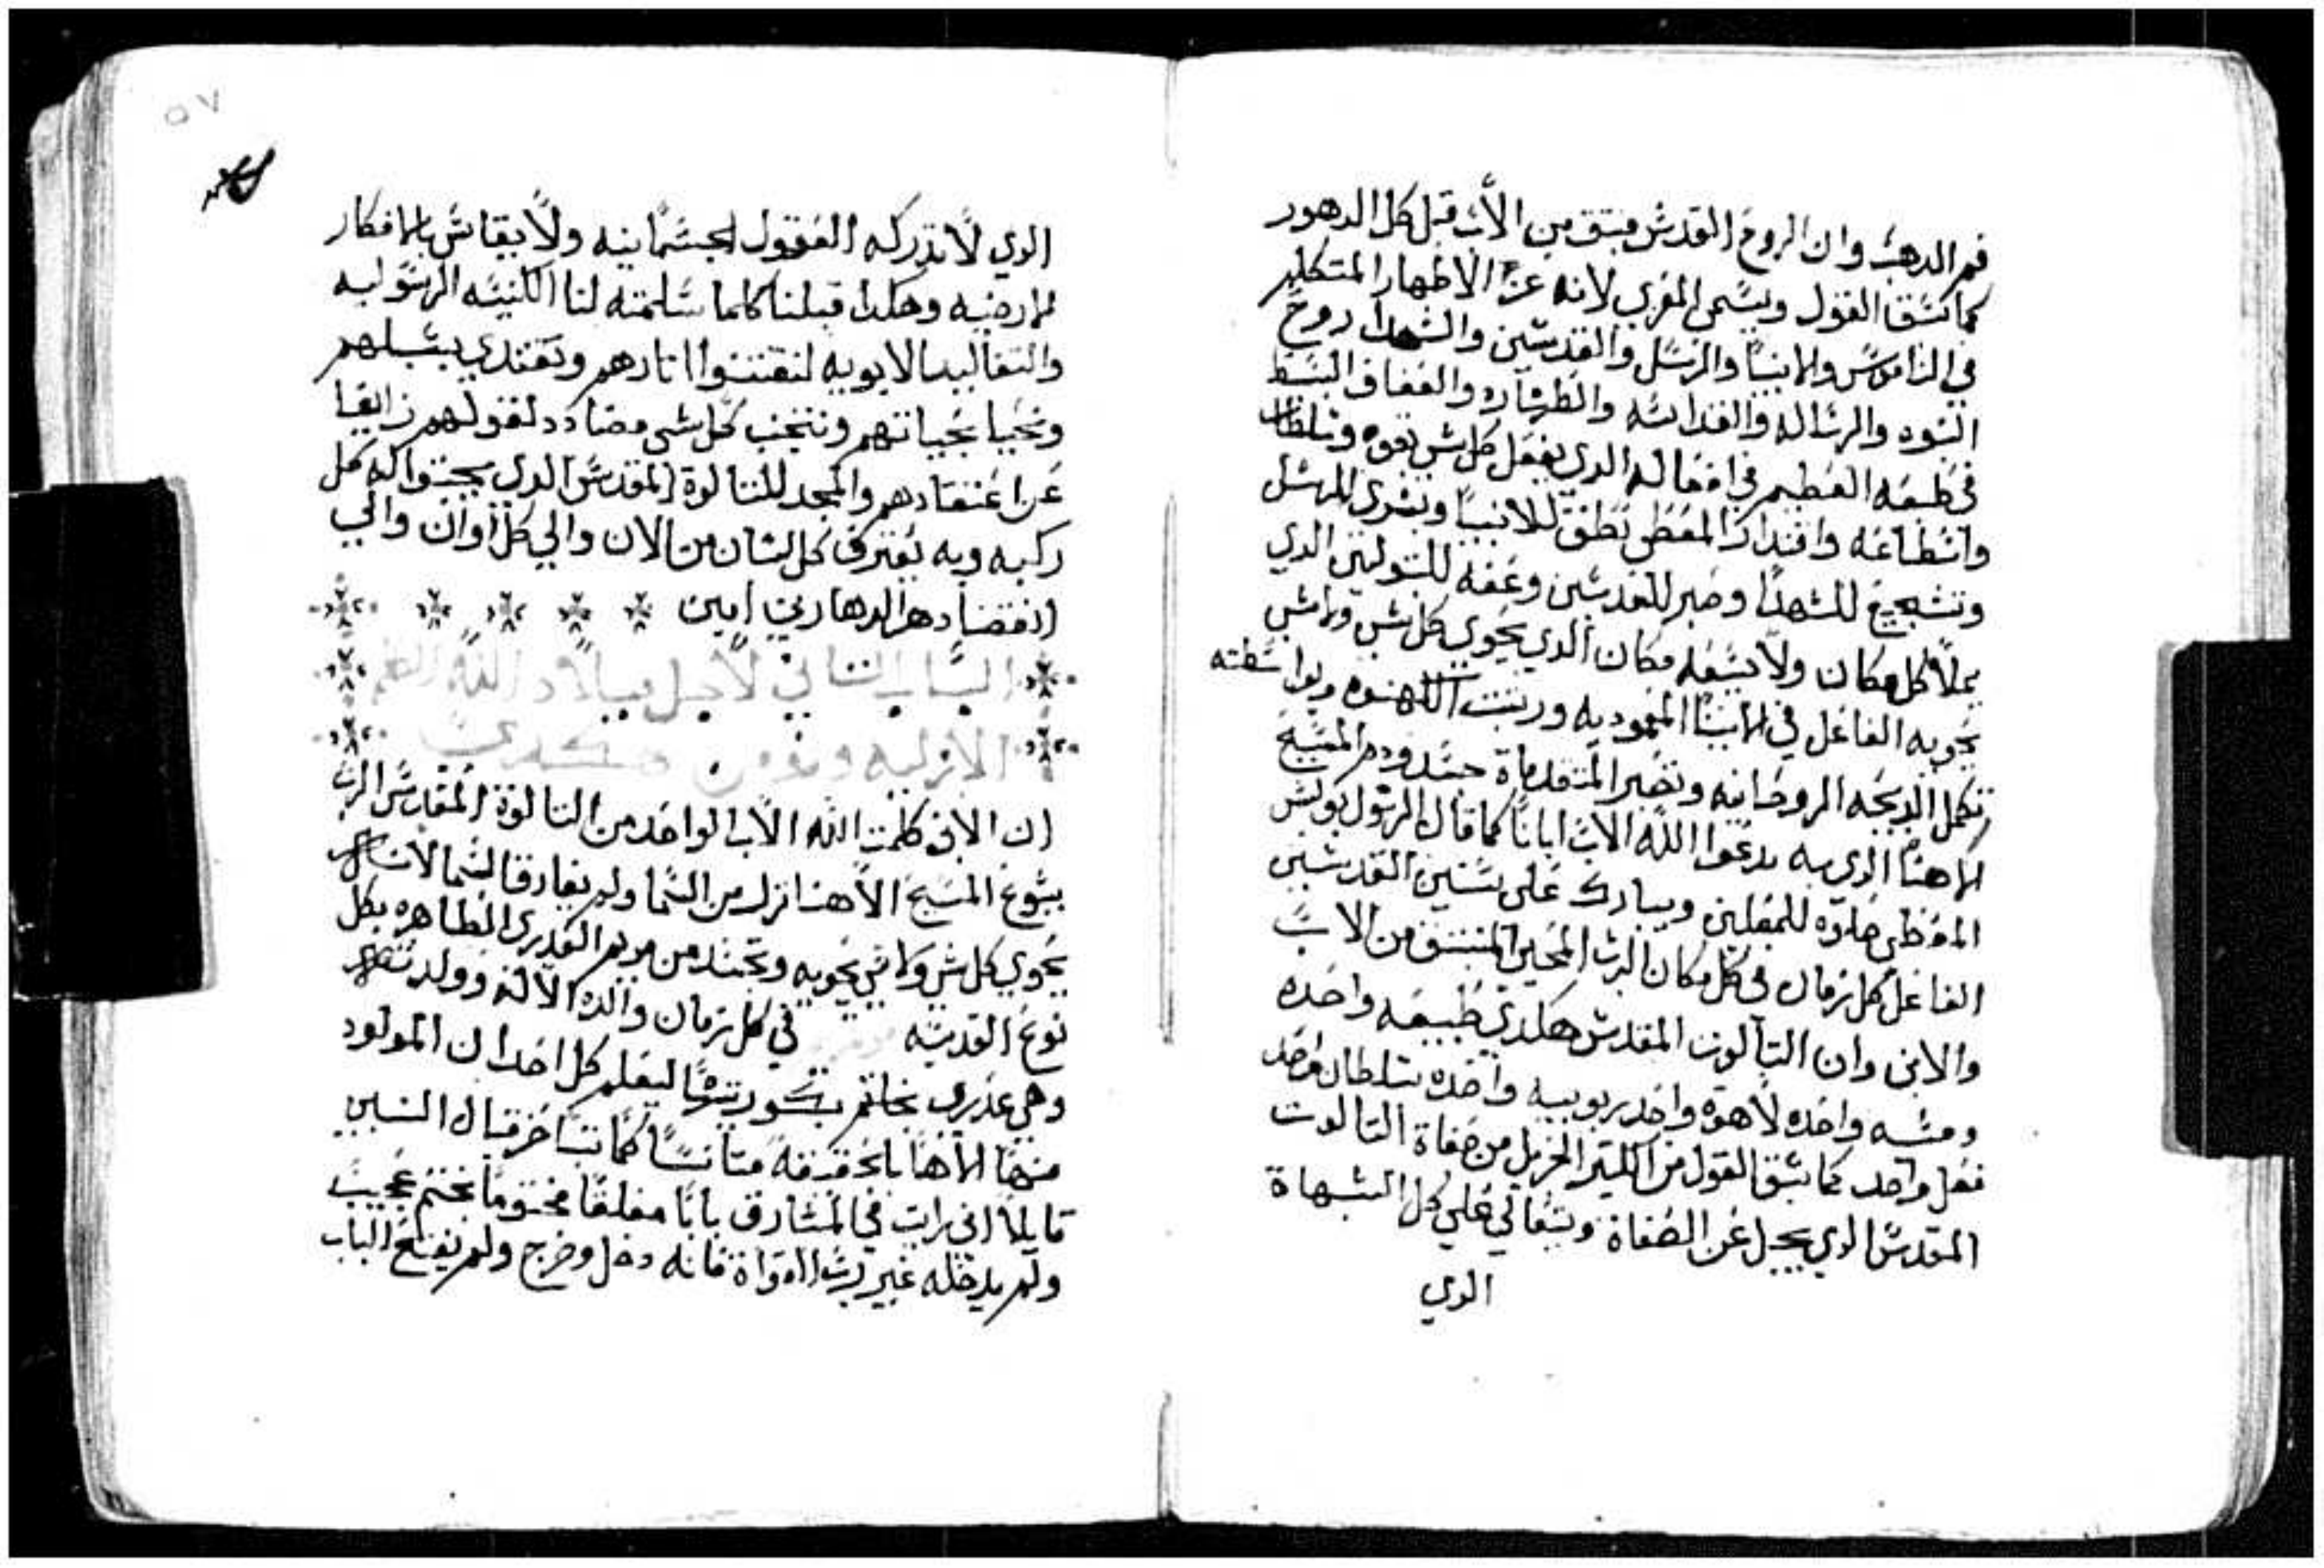 فم الدهب وان الروح القدس منبتق من الاب قبل كل الدهور
كما سبق القول ويسمى المعزي لانه عزا الاطهار المتكلم
في الناموس والانبيا والرسل والقديسين والشهدا روح
النبوه والرساله والقداسه والطهاره والعفاف البسيط
في طبعه العظيم في افعاله الدي يفعل كل شي بقوه وسلطان
واستطاعه واقتدار المعطي نطق للانبيا وبشرى للرسل
وتشجيع للشهدا وصبر للقديسين وعفه للبتوليين الدي
يملا كل مكان ولا يسعه مكان الدي يحوي كل شي ولا شي
يحويه الفاعل في الابسا المعموديه ورتبت الكهنوه وبواسطته
تكمل الدبيحه الروحانيه وتصير المتقدماة جسد ودم المسيح
الاهنا الدي به ندعوا الله الاب ابانا كما قال الرسول بولس
المعطي حلاوه للمقلين ويبارك على سنين القديسين
الفاعل كل زمان في كل مكان الرب المحيي المنبتق من الاب
والابن وان التالوت المقدس هكدي طبيعه واحده
ومشيه واحده لاهوة واحد ربوبيه واحده سلطان واحد
فعل واحد كما سبق القول من الكتير الجزيل من صفاة التالوت
المقدس الدي يجل عن الصفاة ويتعالي علي كل الشبهاة
الدي
٥٧
الدي لا تدركه العقول الجسمانيه ولا يقاس بالافكار
الارضيه وهكدا قبلنا كلما سلمته لنا الكنيسه الرسوليه
والتقاليد الابويه لنقتنوا اتارهم ونقتدي بسبلهم
ونحيا بحياتهم ونتجنب كل شي مضادد لقولهم زايغا
عن اعتقادهم والمجد للتالوة المقدس الدي يجتوا له كل
ركبه وبه يعترف كل لسان من الان والي كل اوان والي
انقضا دهر الداهرين امين
الباب التاني لاجل ميلاد الله الكلمه
الازليه ونومن هكدي
ان الابن كلمت الله الاب الواحد من التالوة المقدس الرب
يسوع المسيح الاهنا نزل من السما ولم يفارق السما لانه
يحوي كل شي ولا شي يحويه وتجسد من مريم العدرى الطاهره بكل
نوع القديسه في كل زمان والدة الاله وولد منها
وهي عدرى بخاتم بكوريتها ليعلم كل احد ان المولود
منها الاها بالحقيقه متانسا كما تنبا حزقيال النبي
قايلا اني رايت في المشارق بابا مغلقا مختوما بختم عجيب
ولم يدخله غير رب القواة فانه دخل وخرج ولم يفتح الباب